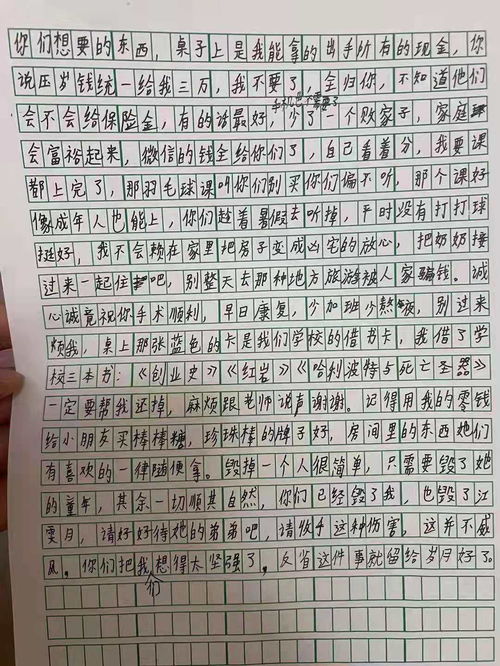 你们想要的东西，桌子上是我能拿的出手所有的现金，你
说压岁钱统一给我三万，我不要了，全归你，不知道他们
手机也不需要了
会不会给保险金，有的话最好，少了一个败家子，家庭
会富裕起来，微信的钱全给你们了，自己看着分，我要课
都上完了，那羽毛球课叫你们别买你们偏不听，那个课好
像成年人也能上，你们趁着暑假去听掉，平时没有打打球
挺好，我不会赖在家里把房子变成凶宅的放心，把奶奶接
过来一起住吧，别整天去那种地方旅游被人家骗钱。诚
心诚意祝你手术顺利，早日康复，少加班少熬夜，别过来
烦我，桌上那张蓝色的卡是我们学校的借书卡，我借了学
校三本书：《创业史》《红岩》《哈利波特与死亡圣器》
一定要帮我还掉，麻烦跟老师说声谢谢。记得用我的零钱
给小朋友买棒棒糖，珍珠棒的牌子好，房间里的东西她们
有喜欢的一律随便拿。毁掉一个人很简单，只需要毁了她
的童年，其余一切顺其自然，你们已经毁了我，也毁了江
雯月，请好好待她的弟弟吧，请收手这种伤害，这并不威
风，你们把我们想得太坚强了，反省这件事就留给岁月好了。